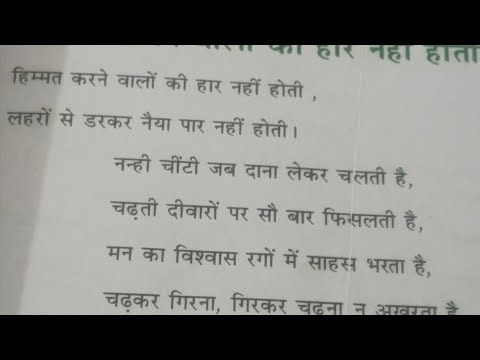 की हार नहीं होती
हिम्मत करने वालों की हार नहीं होती ,
लहरों से डरकर नैया पार नहीं होती।
नन्ही चींटी जब दाना लेकर चलती है,
चढ़ती दीवारों पर सौ बार फिसलती है,
मन का विश्वास रगों में साहस भरता है,
चढ़कर गिरना, गिरकर चढ़ना न अखरता है